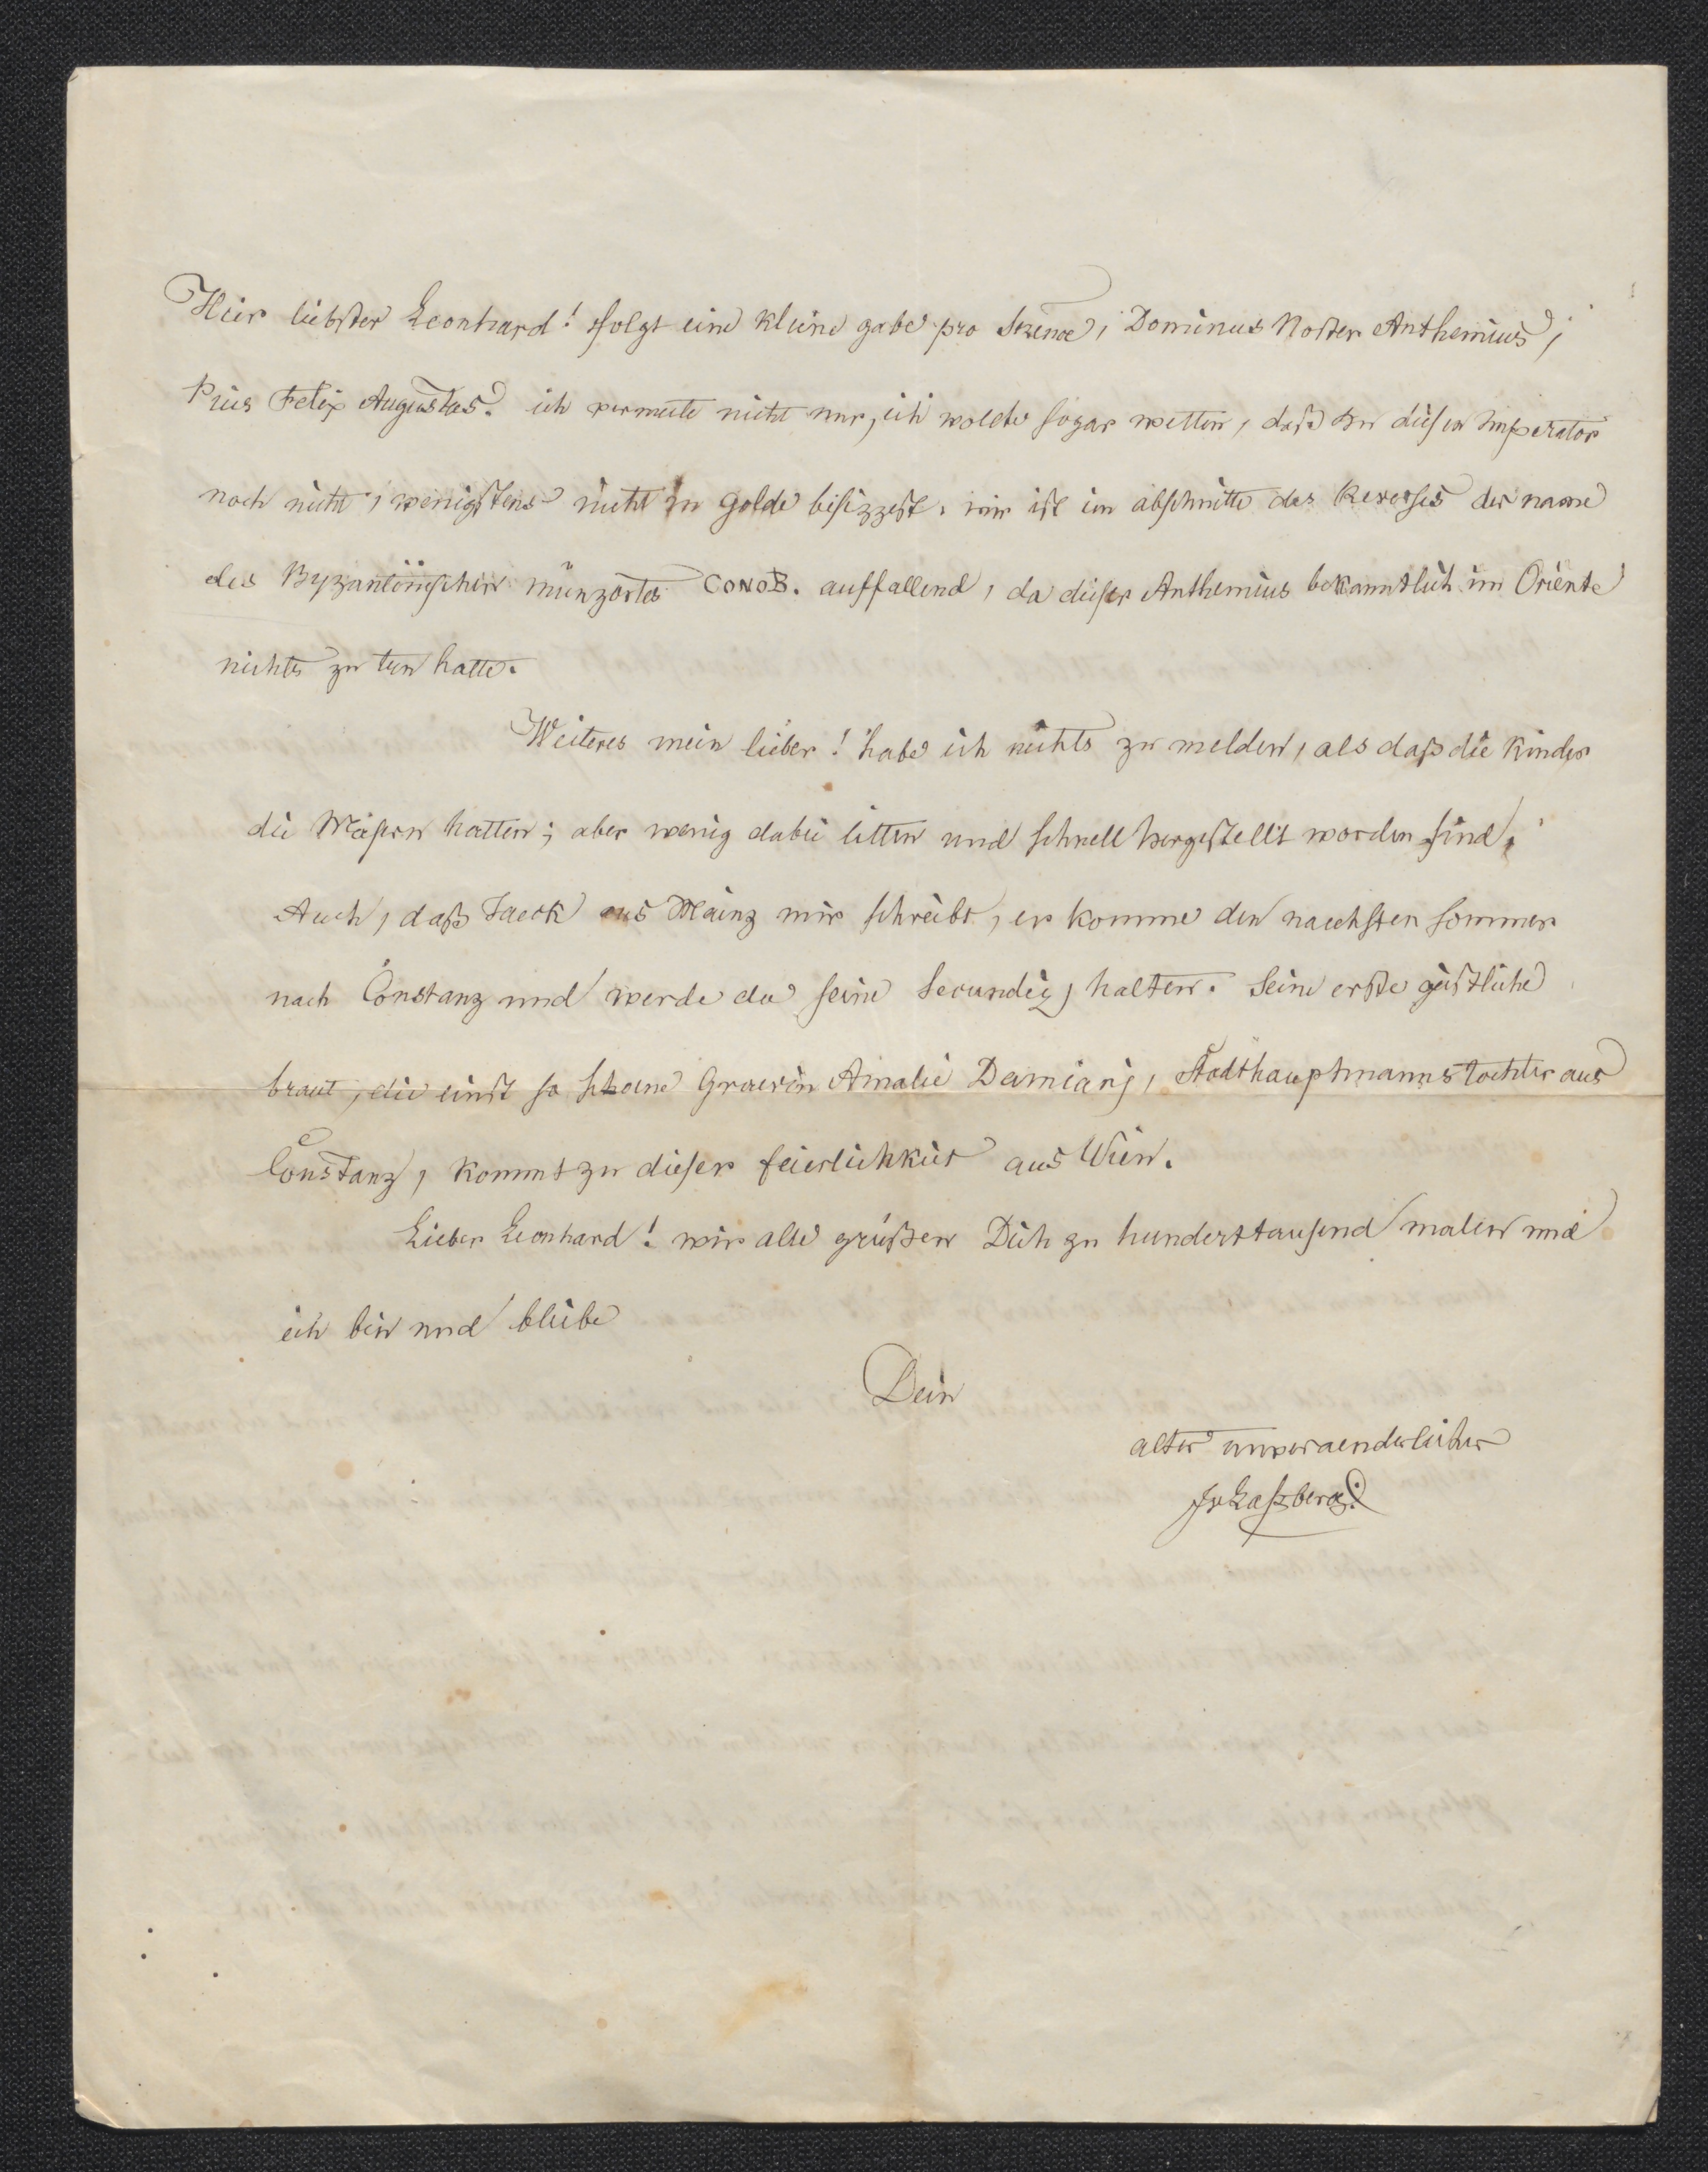 Hier liebster Leonhard! folgt eine kleine gabe pro strenae, Dominus Noster Anthemius,
Pius Felix Augustus. ich vermute nicht nur, ich wolte sogar wetten, daß du diesen Imperator
noch nicht, wenigstens nicht in Golde besizzest. mir ist im abschnitte des Reverses der name
des Byzantinischen münzortes CONOB. auffallend, da dieser Anthemius bekanntlich im Oriente
nichts zu tun hatte.
Weiteres mein lieber! habe ich nichts zu melden, als daß die Kinder
die Masern hatten; aber wenig dabei litten und schnell hergestellt worden sind.
Auch, daß Jaeck aus Mainz mir schreibt, er komme den naechsten sommer
nach Constanz und werde da seine Secundiz halten. Seine erste geistliche
braut, die einst so schoene Graevin Amalie Damiani, Stadthauptmannstochter aus
Constanz, kommt zu dieser feierlichkeit aus Wien.
Lieber Leonhard! wir alle grüßen Dich zu hunderttausend malen und
ich bin und bleibe
Dein
alter unveraenderlicher
JvLaßberg.